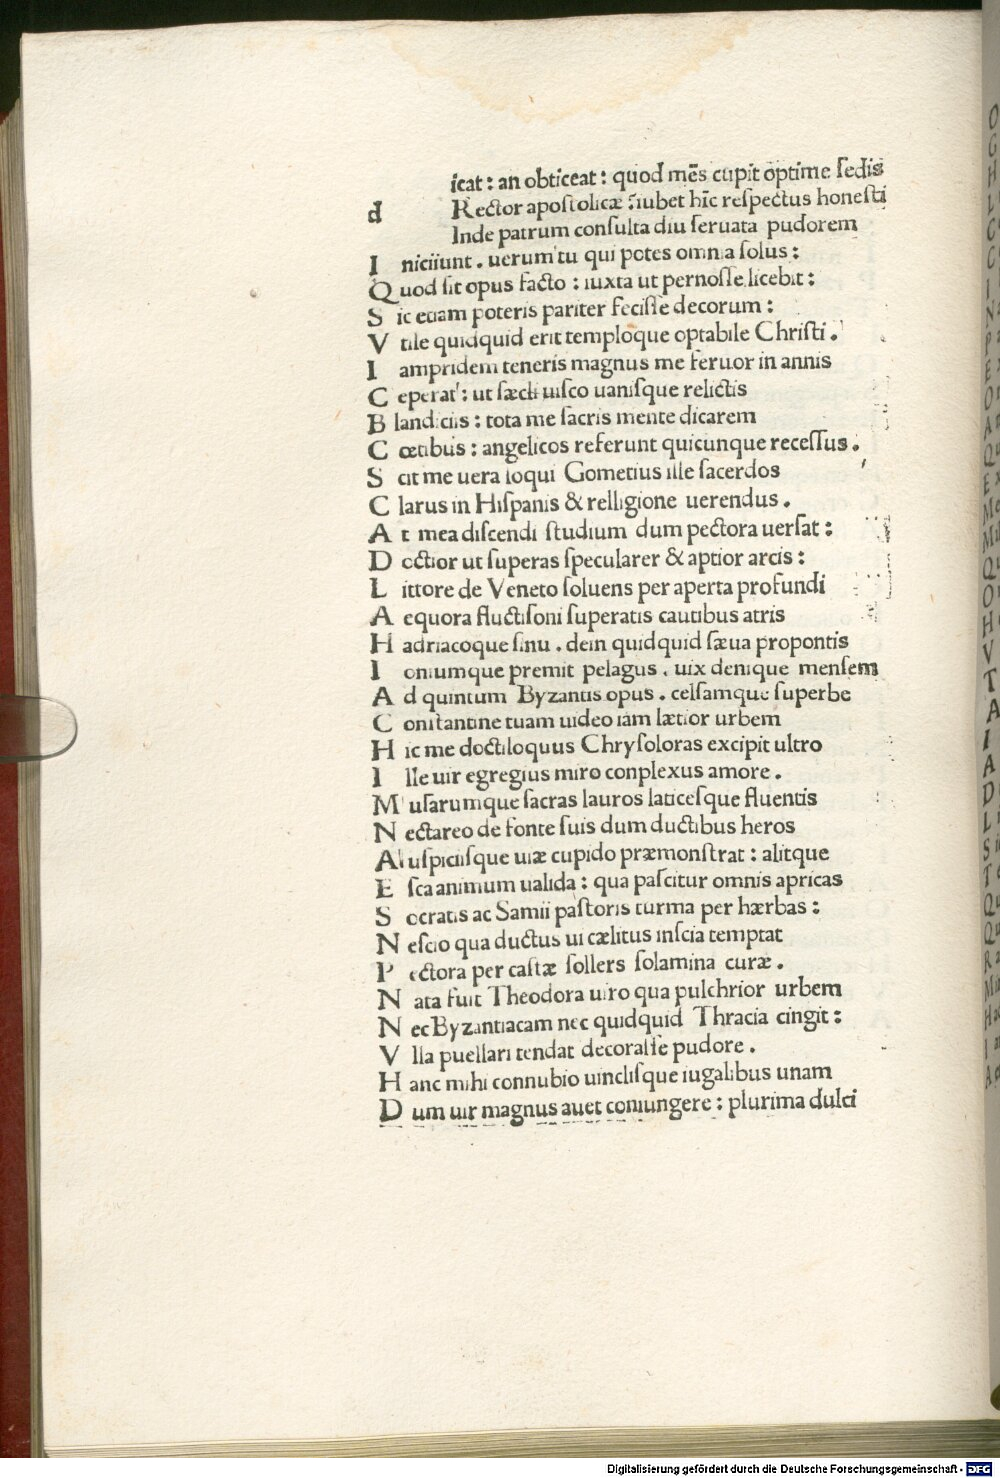 d icat : an obticeat : quod mēs cupit optime ſedis
Rector apoſtolicæ : iubet hīc reſpectus honeſti
Inde patrum conſulta diu ſeruata pudorem
I niciunt . uerum tu qui potes omnia ſolus :
Q uod ſit opus facto : iuxta ut pernoſſe licebit :
S ic etiam poteris pariter feciſſe decorum :
V tile quidquid erit temploque optabile Chriſti .
I ampridem teneris magnus me feruor in annis
C eperat : ut ſæcli uiſco uaniſque relictis
B landiciis : tota me ſacris mente dicarem
C œtibus : angelicos referunt quicunque receſſus .
S cit me uera loqui Gometius ille ſacerdos
C larus in Hiſpanis & relligione uerendus .
A t mea diſcendi ſtudium dum pectora uerſat :
D octior ut ſuperas ſpecularer & aptior arcis :
L ittore de Veneto ſoluens per aperta profundi
A equora fluctiſoni ſuperatis cautibus atris
H adriacoque ſinu . dein quidquid ſæua propontis
I oniumque premit pelagus . uix denique menſem
A d quintum Byzantis opus . celſamque ſuperbe
C onſtantine tuam uideo iam lætior urbem
H ic me doctiloquus Chryſoloras excipit ultro
I lle uir egregius miro conplexus amore .
M uſarumque ſacras lauros laticeſque fluentis
N ectareo de fonte ſuis dum ductibus heros
A uſpiciiſque uiæ cupido præmonſtrat : alitque
E ſca animum ualida : qua paſcitur omnis apricas
S ocratis ac Samii paſtoris turma per hærbas :
N eſcio qua ductus ui cælitus inſcia temptat
P ectora per caſtæ ſollers ſolamina curæ .
N ata fuit Theodora uiro qua pulchrior urbem
N ec Byzantiacam nec quidquid Thracia cingit :
V lla puellari tendat decoraſſe pudore .
H anc mihi connubio uincliſque iugalibus unam
D um uir magnus auet coniungere : plurima dulci
Digitalisierung gefördert durch die Deutsche Forschungsgemeinschaft - DFG